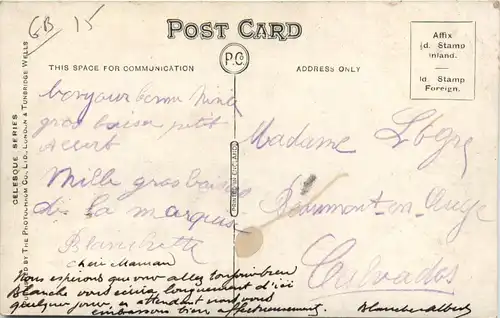 GB 15
POST CARD
Affix
½d. Stamp
Inland.
—
1d. Stamp
Foreign.
P.C.
THIS SPACE FOR COMMUNICATION
ADDRESS ONLY
CELESQUE SERIES
PUBLISHED BY THE PHOTOCHROM CO., LTD., LONDON & TUNBRIDGE WELLS
bonjour bonne Nina
gros baiser petit
Mille gros baisers
de la marquise
Blanchette
Madame
Beaumont-en-Auge
Calvados
chère Maman
Nous espérons que vous allez toujours bien
Blanche vous écrira longuement d'ici
quelque jours, en attendant nous vous
embrassons bien affectueusement.
Blanche Albert